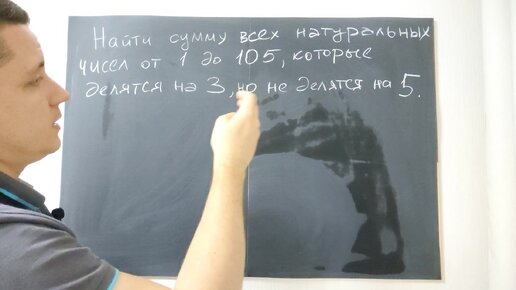 Найти сумму всех натуральных
чисел от 1 до 105, которые
делятся на 3, но не делятся на 5.